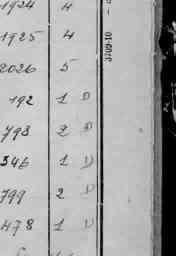 1924 4
1925 4
2026 5
192 1 D
798 2 D
346 1 D
799 2 D
478 1 D
3709-10